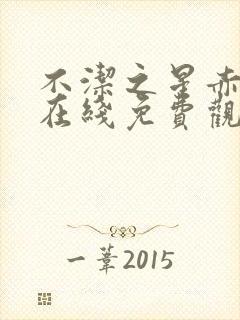 不潔之星赤
在綫免費觀
一葦2015